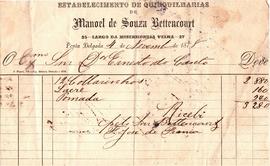 ESTABELECIMENTO DE QUINQUILHARIAS
DE
Manoel de Souza Bettencourt
25-LARGO DA MISERICORDIA VELHA-27
Ponta Delgada 4 de Novemb. de 187
O Exmo Snr. Dor Ernesto do Canto Deve
12 Collarinhos 2 880
Lacre 160
Pomada 240
3 280
Recebi
Bettencourt